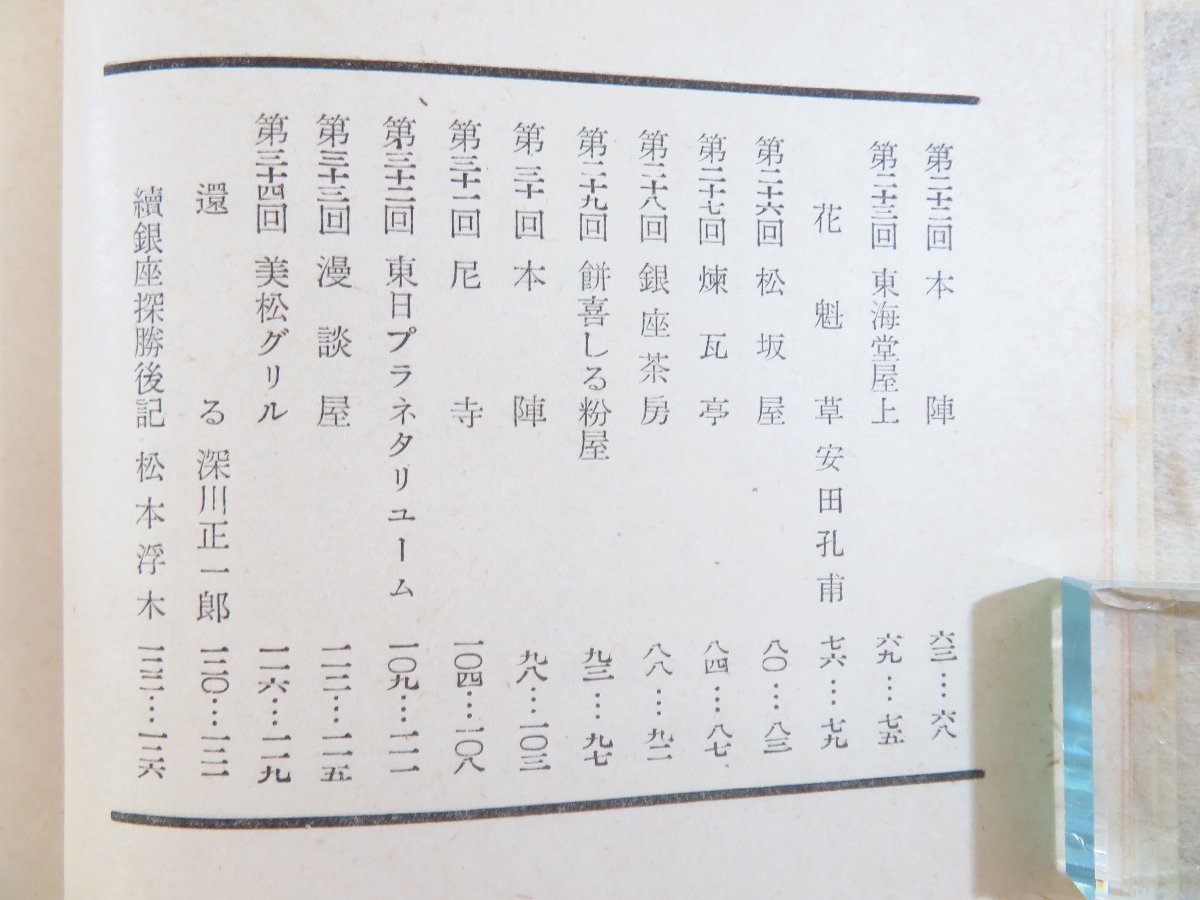 第二十二回 本陣 六三…六八
第二十三回 東海堂屋上 六九…七五
花魁草 安田孔甫 七六…七九
第二十六回 松坂屋 八〇…八三
第二十七回 煉瓦亭 八四…八七
第二十八回 銀座茶房 八八…九二
第二十九回 餅喜しる粉屋 九三…九七
第三十回 本陣 九八…一〇三
第三十一回 尼寺 一〇四…一〇八
第三十二回 東日プラネタリューム 一〇九…一一一
第三十三回 漫談屋 一一二…一一五
第三十四回 美松グリル 一一六…一一九
還る 深川正一郎 一二〇…一二一
續銀座探勝後記 松本浮木 一二二…一二六